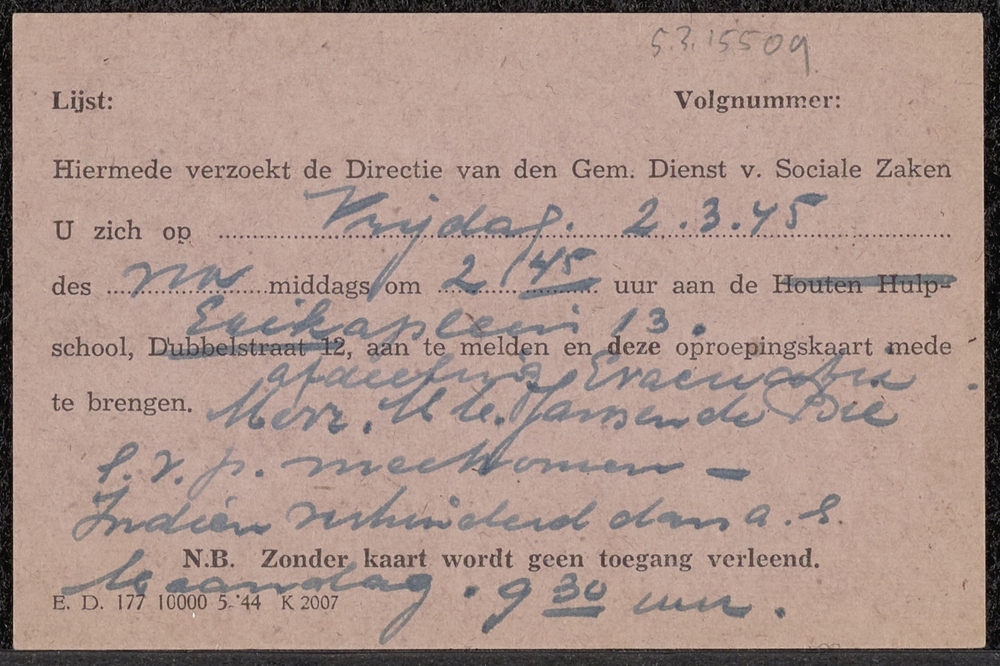 5.3.15509
Lijst: Volgnummer:
Hiermede verzoekt de Directie van den Gem. Dienst v. Sociale Zaken
U zich op Vrijdag. 2.3.45
des na middags om 2 45 uur aan de Houten Hulp-
Erikaplein 13.
school, Dubbelstraat 12, aan te melden en deze oproepingskaart mede
afdeeling Evacuatie.
te brengen.
Mevr. Jansen de
s.v.p. meekomen —
Indien verhinderd dan a.s.
N.B. Zonder kaart wordt geen toegang verleend.
Maandag. 9 30 uur.
E. D. 177 10000 5-'44 K 2007